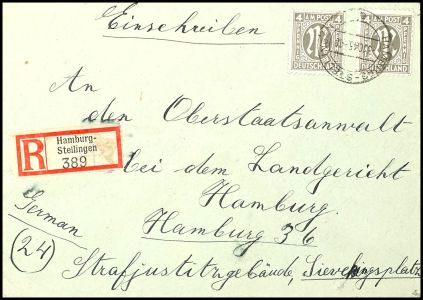 Einschreiben
4 AM POST 4
DEUTSCHLAND
4 AM POST 4
An
den Oberstaatsanwalt
R Hamburg-
Stellingen
389
bei dem Landgericht
Hamburg
Hamburg 36
German
24
Strafjustitzgebäude, Sievekingsplatz